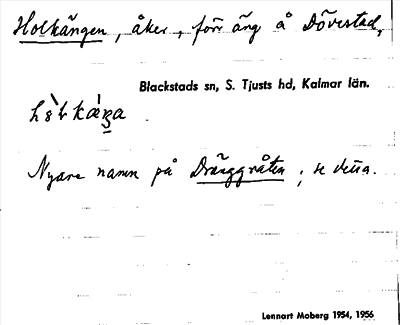 Holkängen, åker, förr äng å Dövestad,
Blackstads sn, S. Tjusts hd, Kalmar län.
Nyare namn på Dränggråten; se detta.
Lennart Moberg 1954, 1956